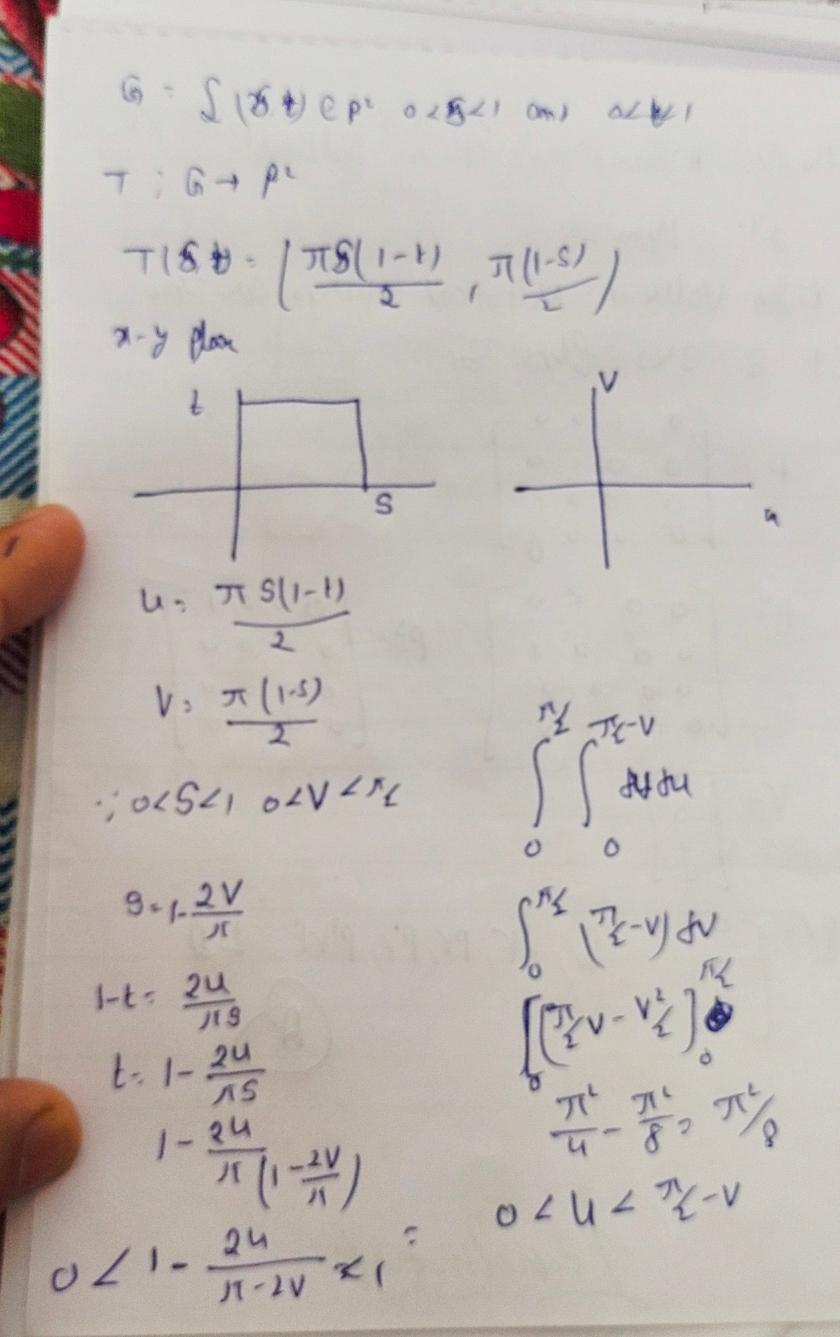 G = { (s, t) ∈ R² 0<s<1 and 0<t<1
T : G → R²
T(s, t) = ( πs(1-t)/2 , π(1-s)/2 )
x-y plan
t
S
V
u
u = π S(1-t)/2
V = π(1-s)/2
∵ 0<S<1 0<V<π/2
S = 1 - 2V/π
1-t = 2u/πs
t = 1 - 2u/πs
1 - 2u/π(1 - 2V/π)
0 < 1 - 2u/(π-2V) < 1 =
∫₀^π/2 ∫₀^π/2-V du dv
∫₀^π/2 (π/2 - V) dv
[(π/2 V - V²/2)]₀^π/2
π²/4 - π²/8 = π²/8
0 < u < π/2 - V